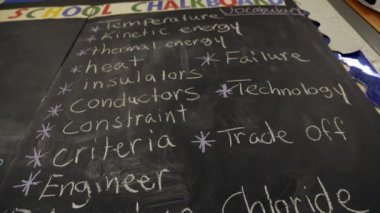 SCHOOL CHALKBOARD
Vocabulary
* Temperature
* Kinetic energy
* thermal energy
* heat
* Failure
* insulators
* Technology
* Conductors
* Constraint
* Criteria
* Trade off
* Engineer
Chloride